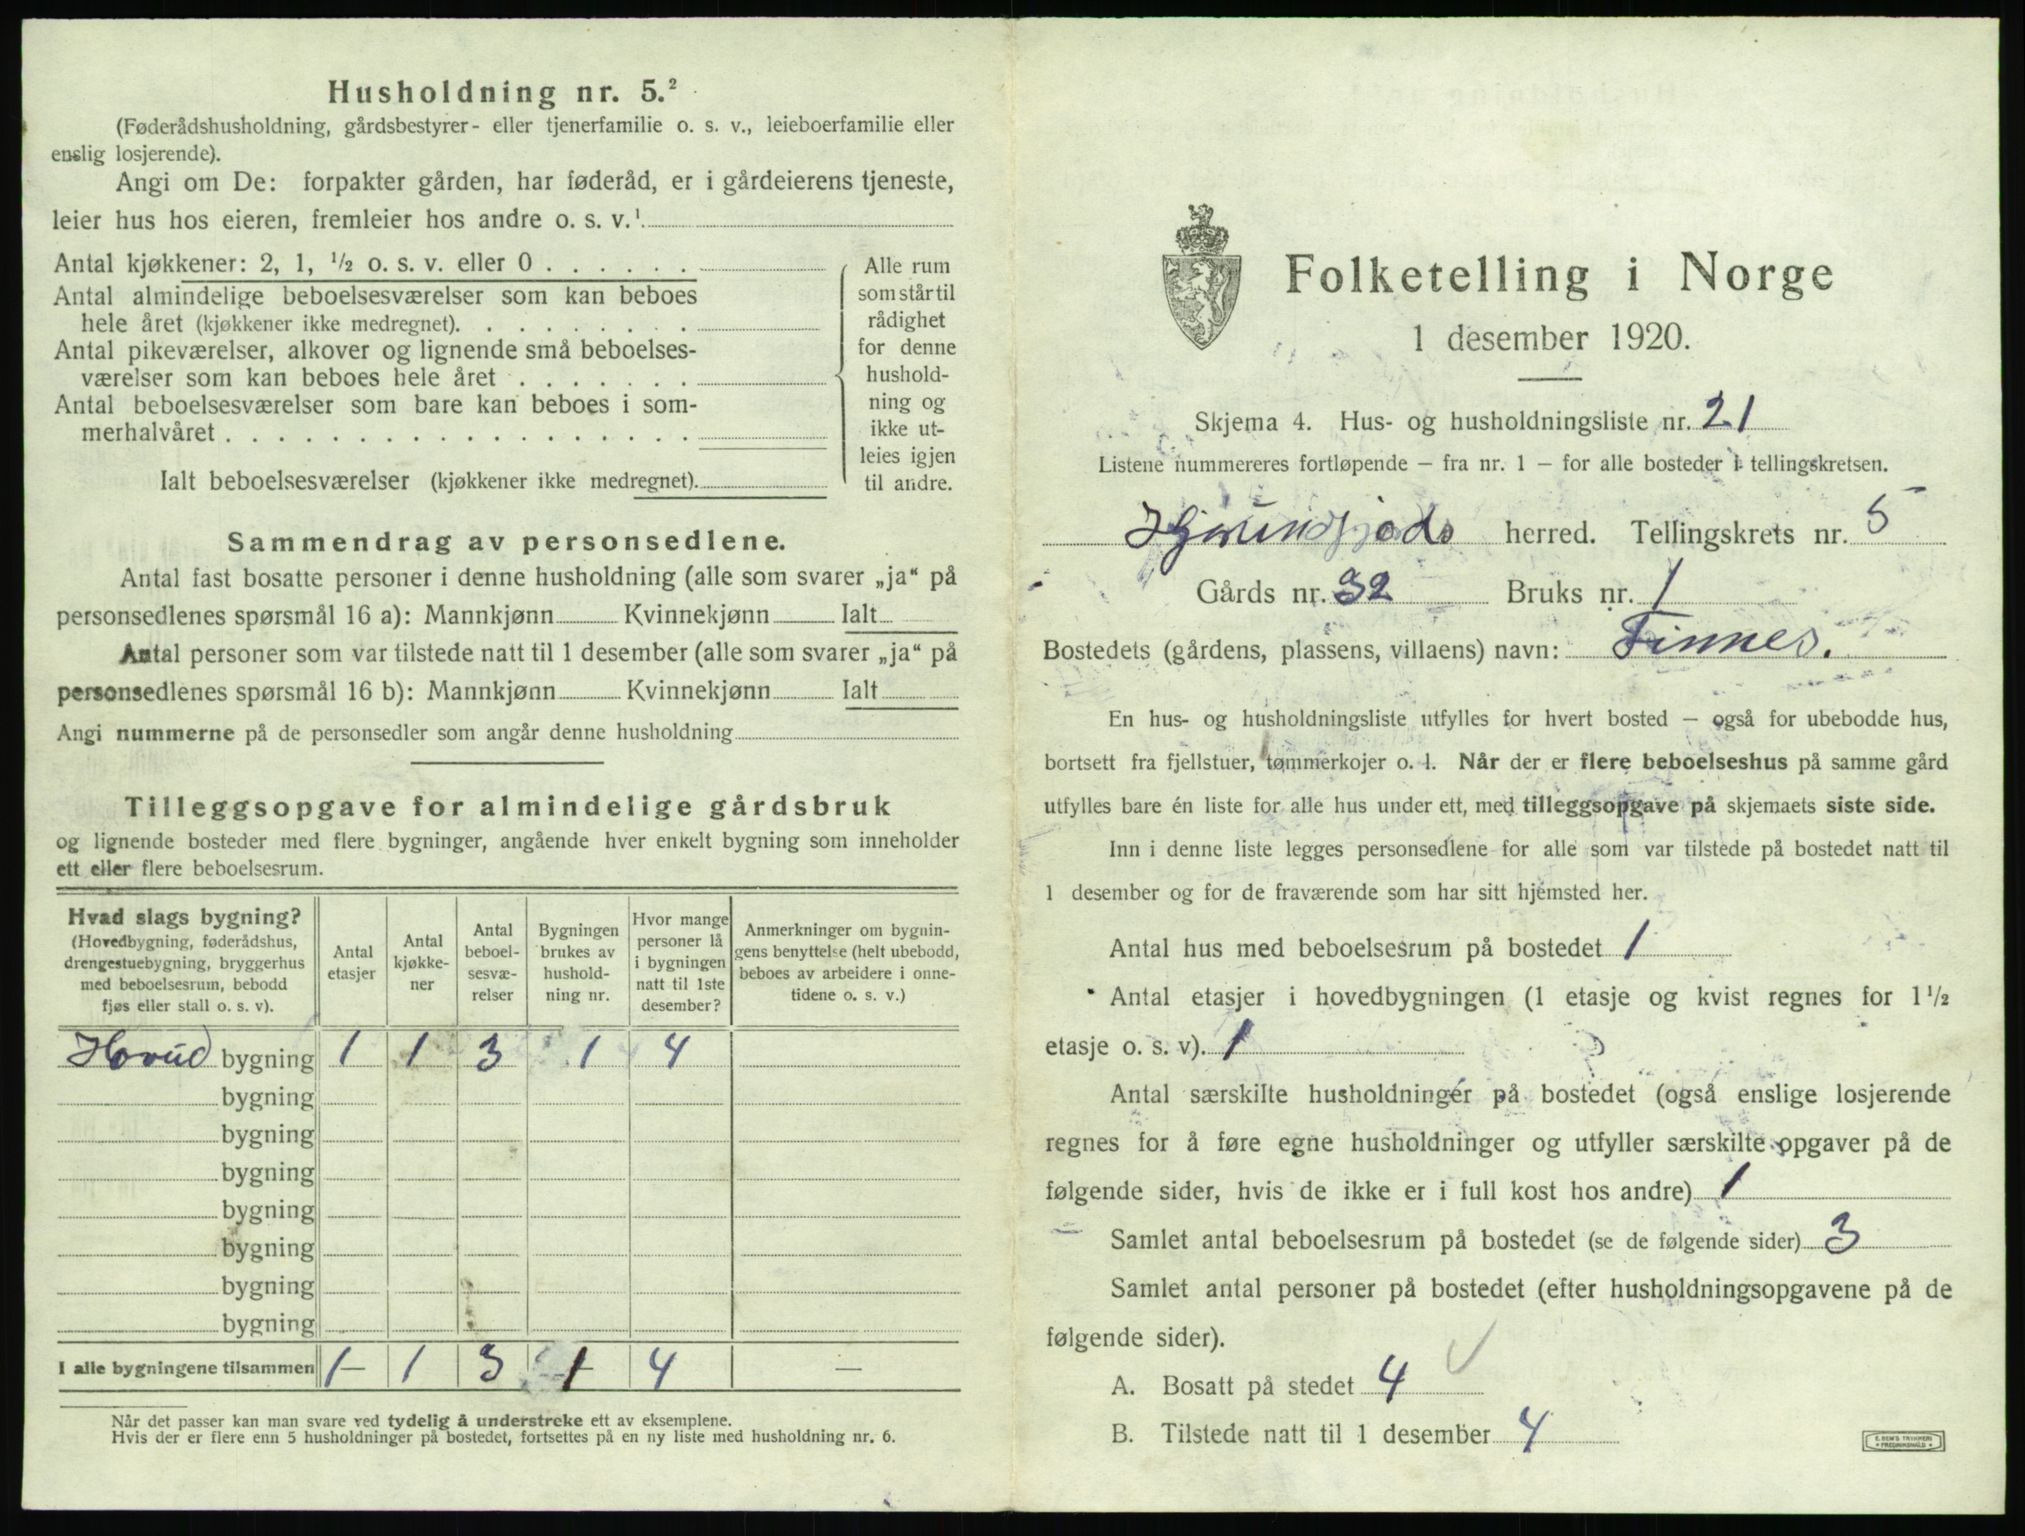 Husholdning nr. 5.²
(Føderådshusholdning, gårdsbestyrer- eller tjenerfamilie o. s. v., leieboerfamilie eller
enslig losjerende).
Angi om De: forpakter gården, har føderåd, er i gårdeierens tjeneste,
leier hus hos eieren, fremleier hos andre o. s. v.¹
Antal kjøkkener: 2, 1, ½ o. s. v. eller 0 . . . . . .
Antal almindelige beboelsesværelser som kan beboes
hele året (kjøkkener ikke medregnet). . . . . . . . .
Antal pikeværelser, alkover og lignende små beboelses-
værelser som kan beboes hele året . . . . . . .
Antal beboelsesværelser som bare kan beboes i som-
merhalvåret . . . . . . . . . . . . . . . . . .
Ialt beboelsesværelser (kjøkkener ikke medregnet).
Alle rum
som står til
rådighet
for denne
hushold-
ning og
ikke ut-
leies igjen
til andre.
Sammendrag av personsedlene.
Antal fast bosatte personer i denne husholdning (alle som svarer „ja“ på
personsedlenes spørsmål 16 a): Mannkjønn Kvinnekjønn Ialt
Antal personer som var tilstede natt til 1 desember (alle som svarer „ja“ på
personsedlenes spørsmål 16 b): Mannkjønn Kvinnekjønn Ialt
Angi nummerne på de personsedler som angår denne husholdning
Tilleggsopgave for almindelige gårdsbruk
og lignende bosteder med flere bygninger, angående hver enkelt bygning som inneholder
ett eller flere beboelsesrum.
Hvad slags bygning?
(Hovedbygning, føderådshus,
drengestuebygning, bryggerhus
med beboelsesrum, bebodd
fjøs eller stall o. s. v).
Antal
etasjer
Antal
kjøkke-
ner
Antal
beboel-
sesvæ-
relser
Bygningen
brukes av
hushold-
ning nr.
Hvor mange
personer lå
i bygningen
natt til 1ste
desember?
Anmerkninger om bygnin-
gens benyttelse (helt ubebodd,
beboes av arbeidere i onne-
tidene o. s. v.)
Hovud bygning 1 1 3 1 4
bygning
bygning
bygning
bygning
bygning
bygning
bygning
I alle bygningene tilsammen 1 1 3 1 4 —
Når det passer kan man svare ved tydelig å understreke ett av eksemplene.
Hvis der er flere enn 5 husholdninger på bostedet, fortsettes på en ny liste med husholdning nr. 6.
Folketelling i Norge
1 desember 1920.
Skjema 4. Hus- og husholdningsliste nr. 21
Listene nummereres fortløpende — fra nr. 1 — for alle bosteder i tellingskretsen.
Hjørundfjords herred. Tellingskrets nr. 5
Gårds nr. 32 Bruks nr. 1
Bostedets (gårdens, plassens, villaens) navn: Finnes.
En hus- og husholdningsliste utfylles for hvert bosted — også for ubebodde hus,
bortsett fra fjellstuer, tømmerkojer o. l. Når der er flere beboelseshus på samme gård
utfylles bare én liste for alle hus under ett, med tilleggsopgave på skjemaets siste side.
Inn i denne liste legges personsedlene for alle som var tilstede på bostedet natt til
1 desember og for de fraværende som har sitt hjemsted her.
Antal hus med beboelsesrum på bostedet 1
Antal etasjer i hovedbygningen (1 etasje og kvist regnes for 1½
etasje o. s. v). 1
Antal særskilte husholdninger på bostedet (også enslige losjerende
regnes for å føre egne husholdninger og utfyller særskilte opgaver på de
følgende sider, hvis de ikke er i full kost hos andre) 1
Samlet antal beboelsesrum på bostedet (se de følgende sider) 3
Samlet antal personer på bostedet (efter husholdningsopgavene på de
følgende sider).
A. Bosatt på stedet 4
B. Tilstede natt til 1 desember 4